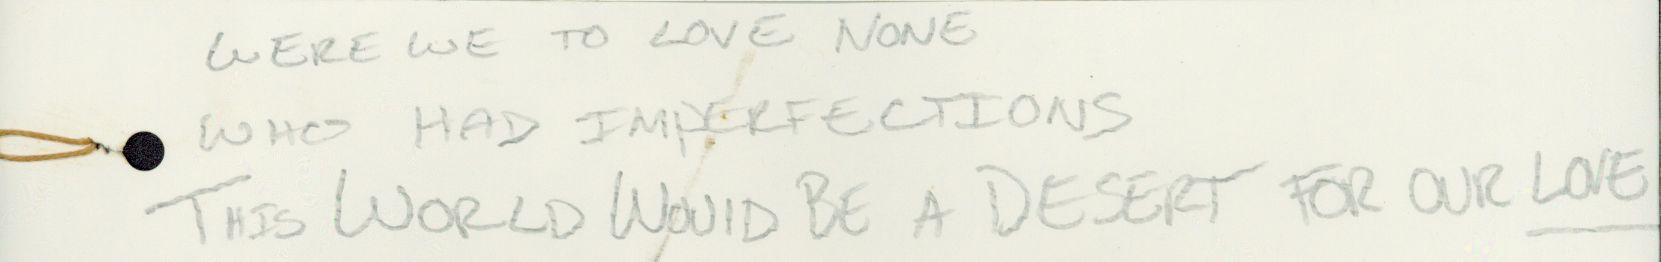 WERE WE TO LOVE NONE
WHO HAD IMPERFECTIONS
THIS WORLD WOULD BE A DESERT FOR OUR LOVE